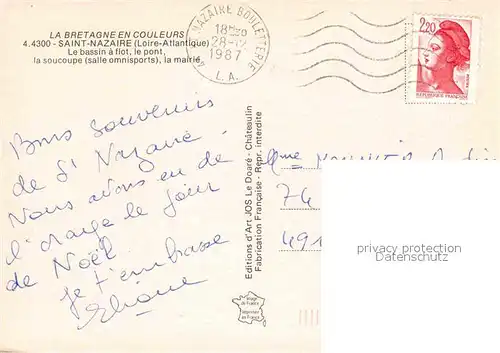 LA BRETAGNE EN COULEURS
4.4300 - SAINT-NAZAIRE (Loire-Atlantique)
Le bassin à flot, le pont,
la soucoupe (salle omnisports), la mairie.
NAZAIRE BOULETTERIE
18H
28-12
1987
L.A.
2,20
REPUBLIQUE FRANÇAISE
Bons souvenirs
de St Nazaire
Nous avons eu de
l'orage le jour
de Noël
Je t'embrasse
Eliane
Editions d'Art JOS Le Doaré - Châteaulin
Fabrication Française - Repr. interdite
Mme
74
491
privacy protection
Datenschutz
Image
de France
Imprimée
en France